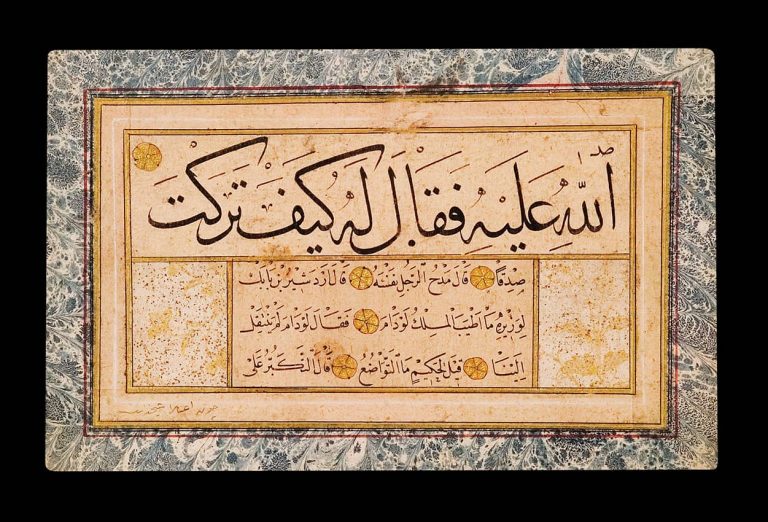 اللّٰهِ عَلَيْهِ فَقَالَ لَهُ كَيْفَ تَرَكْتَ
صِدْقًا قَالَ مَدْحُ الرَّجُلِ نَفْسَهُ قَالَ اَزْدَشِيرُ بْنُ بَابَكَ
لِوَزِيرِهِ مَا اَطْيَبَ الْمُلْكَ لَوْ دَامَ فَقَالَ لَوْ دَامَ لَمْ يَنْتَقِلْ
اِلَيْنَا قِيلَ لِحَكِيمٍ مَا التَّوَاضُعُ قَالَ التَّكَبُّرُ عَلَى